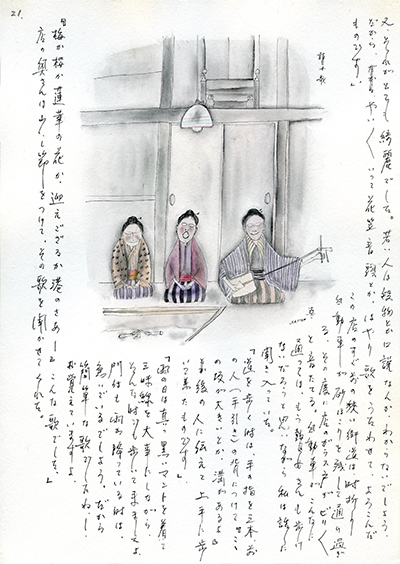 21.
、それがとても綺麗でした。若い人は 物とか 説なんかわからないでしょう。
だから、 やい って花笠音頭とか、はやり歌をうたわせて、よろこんだ
ものです。」
この店のすぐ前の狭い街道は時折り
自動車が砂ぼこりを残して通り過ぎ
る。その度に店のガラス戸がビリ〱
と音をたてる。自動車がこんなに
通っては、もう瞽女さんも歩け
ないだろうと思いながら私は話に
聞き入っていた。
「道を歩く時は、手の指を三本、前
の人(手引き)の背につけて、ここ
の坂が大きいとか、溝があるよと
それ後の人に伝えて上手に歩
いて来たものです。」
「雨の日は真黒いマントを着て
三味線を大事にしながら
どんな時でも歩いてましたよ。
門付も雨が降っている時は、
急いでいるでしょう。だから
簡単な歌でしたねー。
覚えていますよ。
『梅か桜か蓮華の花か、迎えござるか湊のさあー』こんな歌でした。」
店の奥さんは少し節をつけて、その歌を聞かせてくれた。